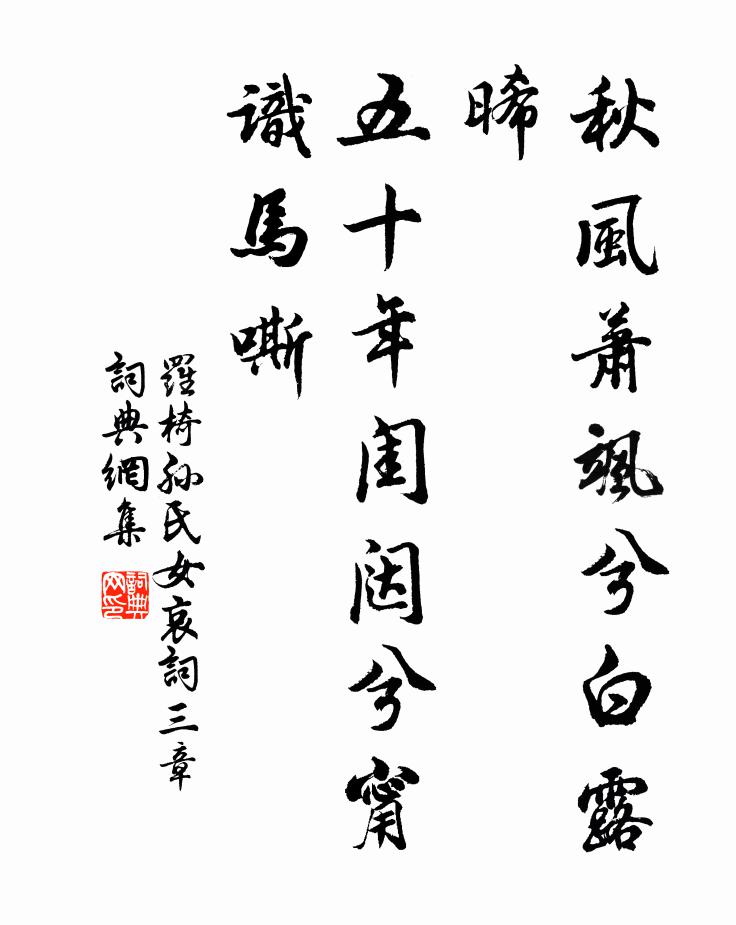 秋風蕭颯兮白露
晞
五十年闺闼兮甯
識馬嘶
羅椅孙氏女哀詞三章
詞典網集
詞典网印